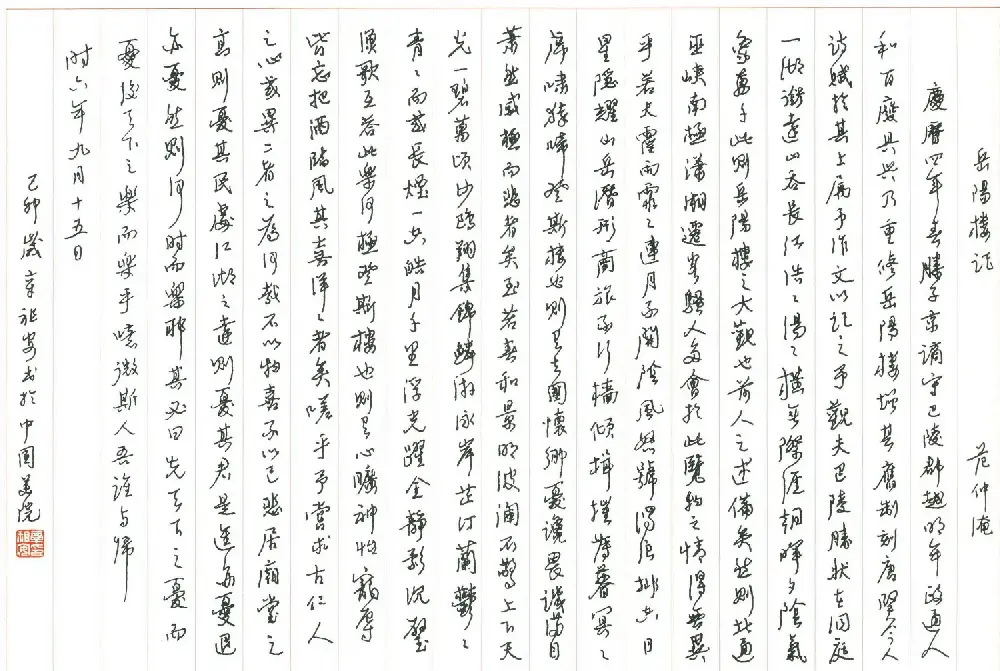 岳陽樓記 范仲淹
慶曆四年春滕子京謫守巴陵郡越明年政通人
和百廢具興乃重修岳陽樓增其舊制刻唐賢今人
詩賦於其上屬予作文以記之予觀夫巴陵勝狀在洞庭
一湖銜遠山吞長江浩〻湯〻橫無際涯朝暉夕陰氣
象萬千此則岳陽樓之大觀也前人之述備矣然則北通
巫峽南極瀟湘遷客騷人多會於此覽物之情得無異
乎若夫霪雨霏〻連月不開陰風怒號濁浪排空日
星隱耀山岳潛形商旅不行檣傾楫摧薄暮冥〻
虎嘯猿啼登斯樓也則有去國懷鄉憂讒畏譏滿目
蕭然感極而悲者矣至若春和景明波瀾不驚上下天
光一碧萬頃沙鷗翔集錦鱗游泳岸芷汀蘭鬱〻
青〻而或長煙一空皓月千里浮光躍金靜影沉璧
漁歌互答此樂何極登斯樓也則有心曠神怡寵辱
皆忘把酒臨風其喜洋〻者矣嗟乎予嘗求古仁人
之心或異二者之為何哉不以物喜不以己悲居廟堂之
高則憂其民處江湖之遠則憂其君是進亦憂退
亦憂然則何時而樂耶其必曰先天下之憂而
憂後天下之樂而樂乎噫微斯人吾誰與歸
時六年九月十五日
己卯歲章祖安書於中國美院